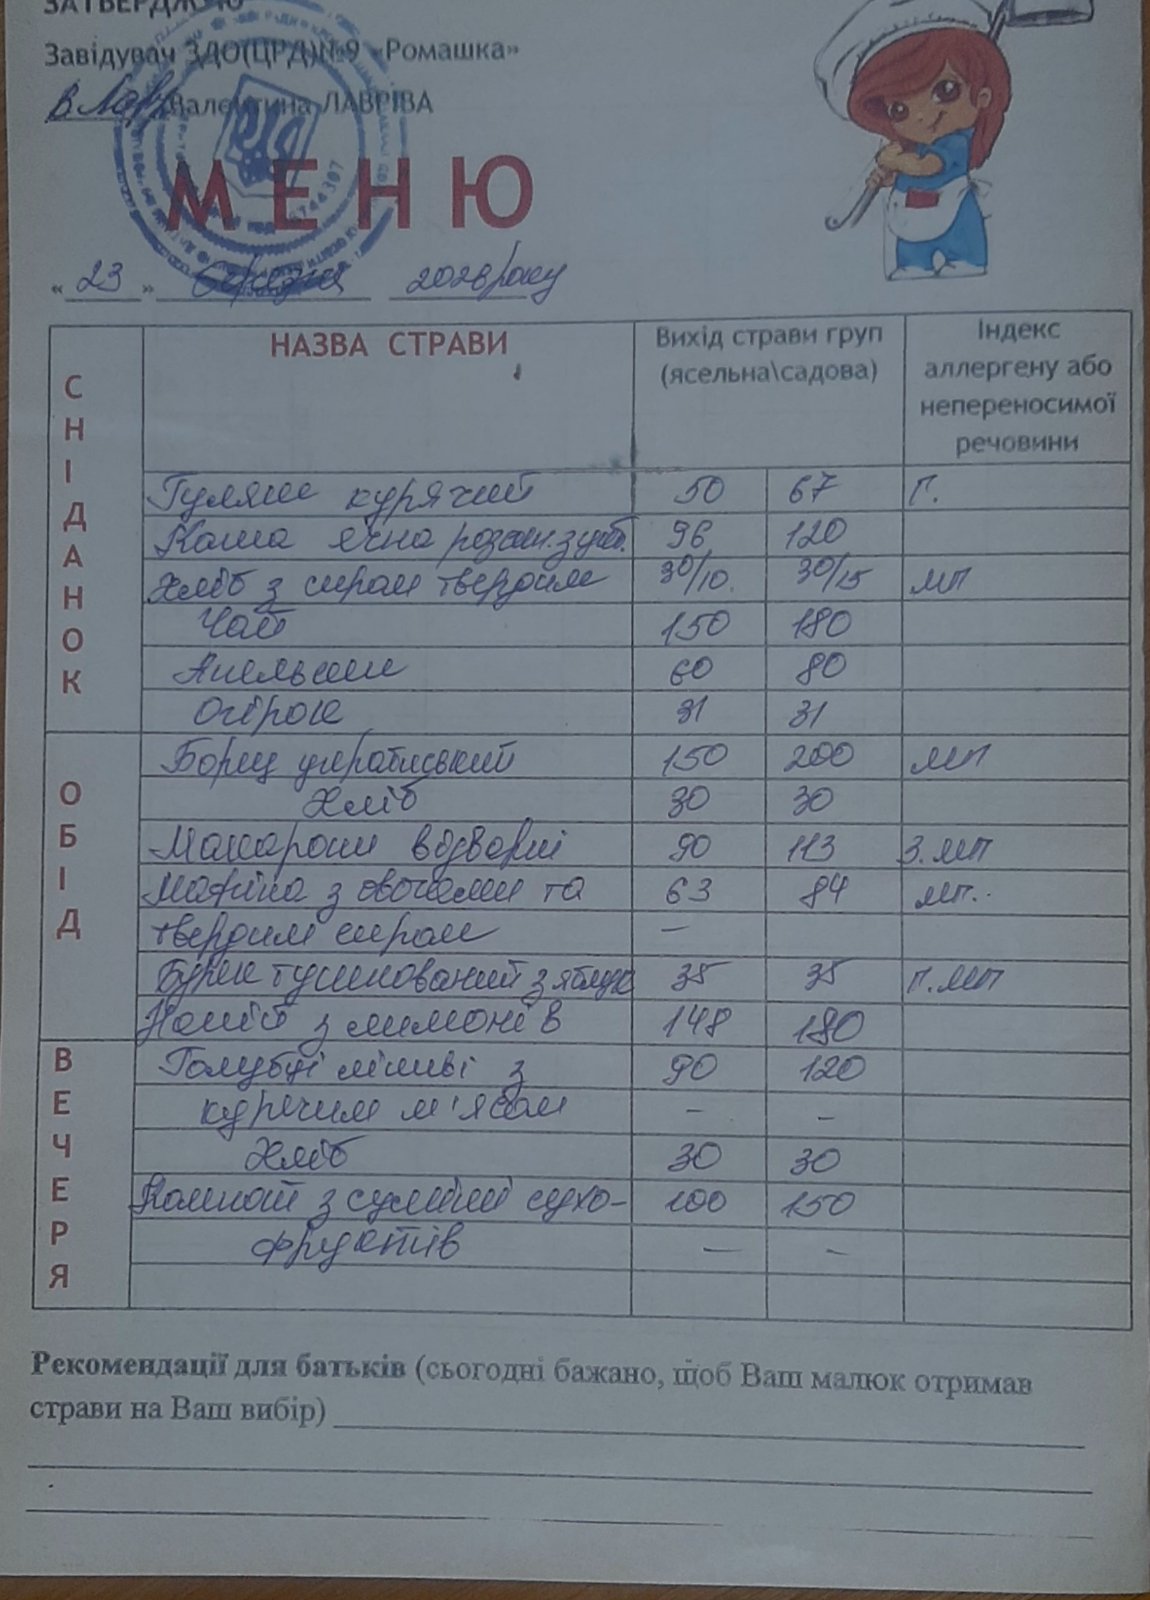 ЗАТВЕРДЖУЮ
Завідувач ЗДО(ЦРД)№9 «Ромашка»
Валентина ЛАВРІВА
МЕНЮ
« 23 » березня 2026 року
СНІДАНОК
НАЗВА СТРАВИ Вихід страви груп (ясельна\садова) Індекс аллергену або непереносимої речовини
Гуляш курячий 50 67 Г.
Каша ячна розсип. 96 120
Хліб з сиром твердим 30/10. 30/15 МП
Чай 150 180
Апельсин 60 80
Огірок 31 31
ОБІД
Борщ український 150 200 МП
Хліб 30 30
Макарони відварні 90 113 З.МП
з овочами та 63 84 МП..
твердим сиром –
Буряк тушкований з яблук 35 35 Г.МП
Напій з лимонів 148 180
ВЕЧЕРЯ
Голубці ліниві з 90 120
курячим м'ясом – –
Хліб 30 30
Компот з суміші сухо- 100 150
фруктів – –
Рекомендації для батьків (сьогодні бажано, щоб Ваш малюк отримав
страви на Ваш вибір)